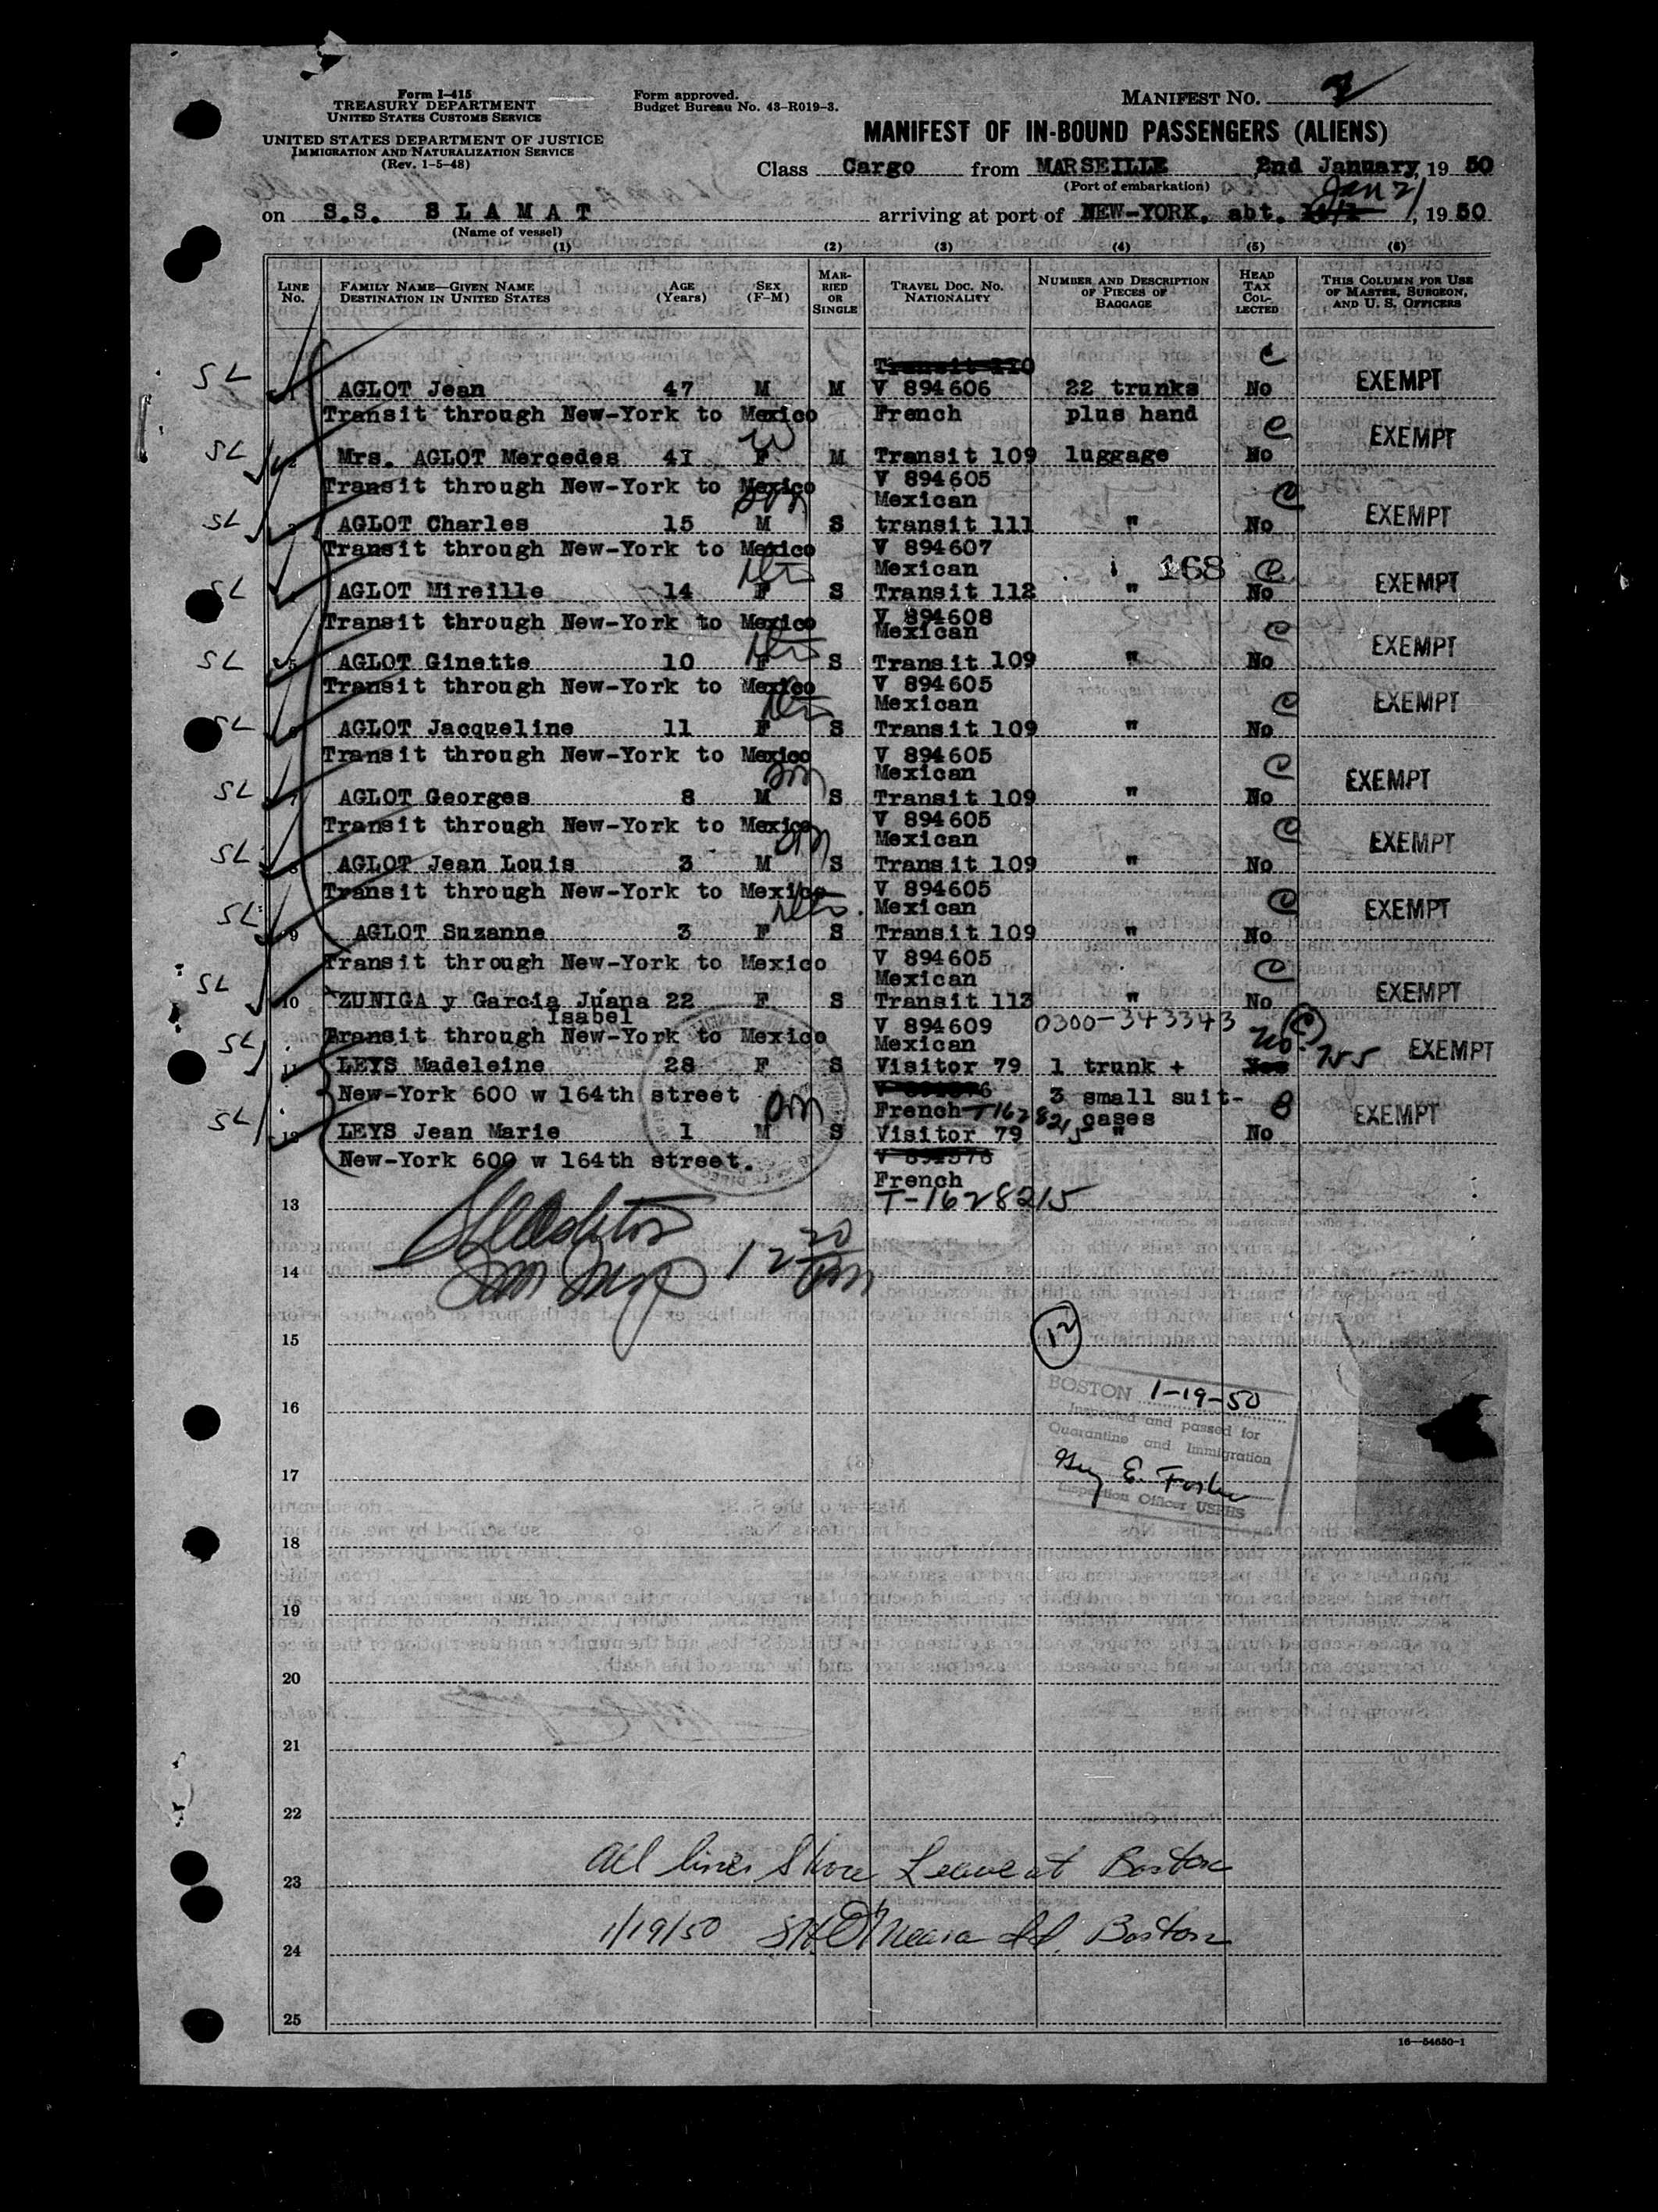 Form I-415
TREASURY DEPARTMENT
UNITED STATES CUSTOMS SERVICE
UNITED STATES DEPARTMENT OF JUSTICE
IMMIGRATION AND NATURALIZATION SERVICE
(Rev. 1-5-48)
Form approved.
Budget Bureau No. 43-R019-3.
MANIFEST NO. 2
MANIFEST OF IN-BOUND PASSENGERS (ALIENS)
Class Cargo from MARSEILLE 2nd January, 19 50
(Port of embarkation)
Jan 21
on S.S. SLAMAT arriving at port of NEW-YORK, abt. , 19 50
(Name of vessel)
(1) (2) (3) (4) (5) (6)
LINE No. FAMILY NAME—GIVEN NAME DESTINATION IN UNITED STATES AGE (Years) SEX (F-M) MARRIED OR SINGLE TRAVEL DOC. NO. NATIONALITY NUMBER AND DESCRIPTION OF PIECES OF BAGGAGE HEAD TAX COLLECTED THIS COLUMN FOR USE OF MASTER, SURGEON, AND U. S. OFFICERS
Transit 110 C
SL 1 AGLOT Jean 47 M M V 894606 22 trunks No EXEMPT
Transit through New-York to Mexico French plus hand
W C
SL 2 Mrs. AGLOT Mercedes 41 F M Transit 109 luggage No EXEMPT
Transit through New-York to Mexico V 894605
Mexican
son C
SL 3 AGLOT Charles 15 M S transit 111 " No EXEMPT
Transit through New-York to Mexico V 894607
Mexican 168 C
SL AGLOT Mireille 14 F S Transit 112 " No EXEMPT
Transit through New-York to Mexico V 894608
Mexican C
SL 5 AGLOT Ginette 10 F S Transit 109 " No EXEMPT
Transit through New-York to Mexico V 894605
Mexican C
SL 6 AGLOT Jacqueline 11 F S Transit 109 " No EXEMPT
Transit through New-York to Mexico V 894605
Mexican C
son
SL 7 AGLOT Georges 8 M S Transit 109 " No EXEMPT
Transit through New-York to Mexico V 894605
Mexican C
son
SL 8 AGLOT Jean Louis 3 M S Transit 109 " No EXEMPT
Transit through New-York to Mexico V 894605
Mexican C
SL 9 AGLOT Suzanne 3 F S Transit 109 " No EXEMPT
Transit through New-York to Mexico V 894605
Mexican C
SL 10 ZUNIGA y Garcia Juana 22 F S Transit 113 " No EXEMPT
Isabel
Transit through New-York to Mexico V 894609 0300-343343
Mexican No. C
SL 11 LEYS Madeleine 28 F S Visitor 79 1 trunk + Yes EXEMPT
New-York 600 w 164th street 3 small suit-
French T1628215 cases
son
SL 12 LEYS Jean Marie 1 M S Visitor 79 " No EXEMPT
New-York 600 w 164th street.
French
T-1628215
13
12 20
14
15
12
BOSTON 1-19-50
Inspected and passed for
Quarantine and Immigration
Guy E. Foster
Inspection Officer USPHS
16
17
18
19
20
21
22
All lines Shore Leave at Boston
23
1/19/50 S.H. O'Meara I.I. Boston
24
25
16—54650-1